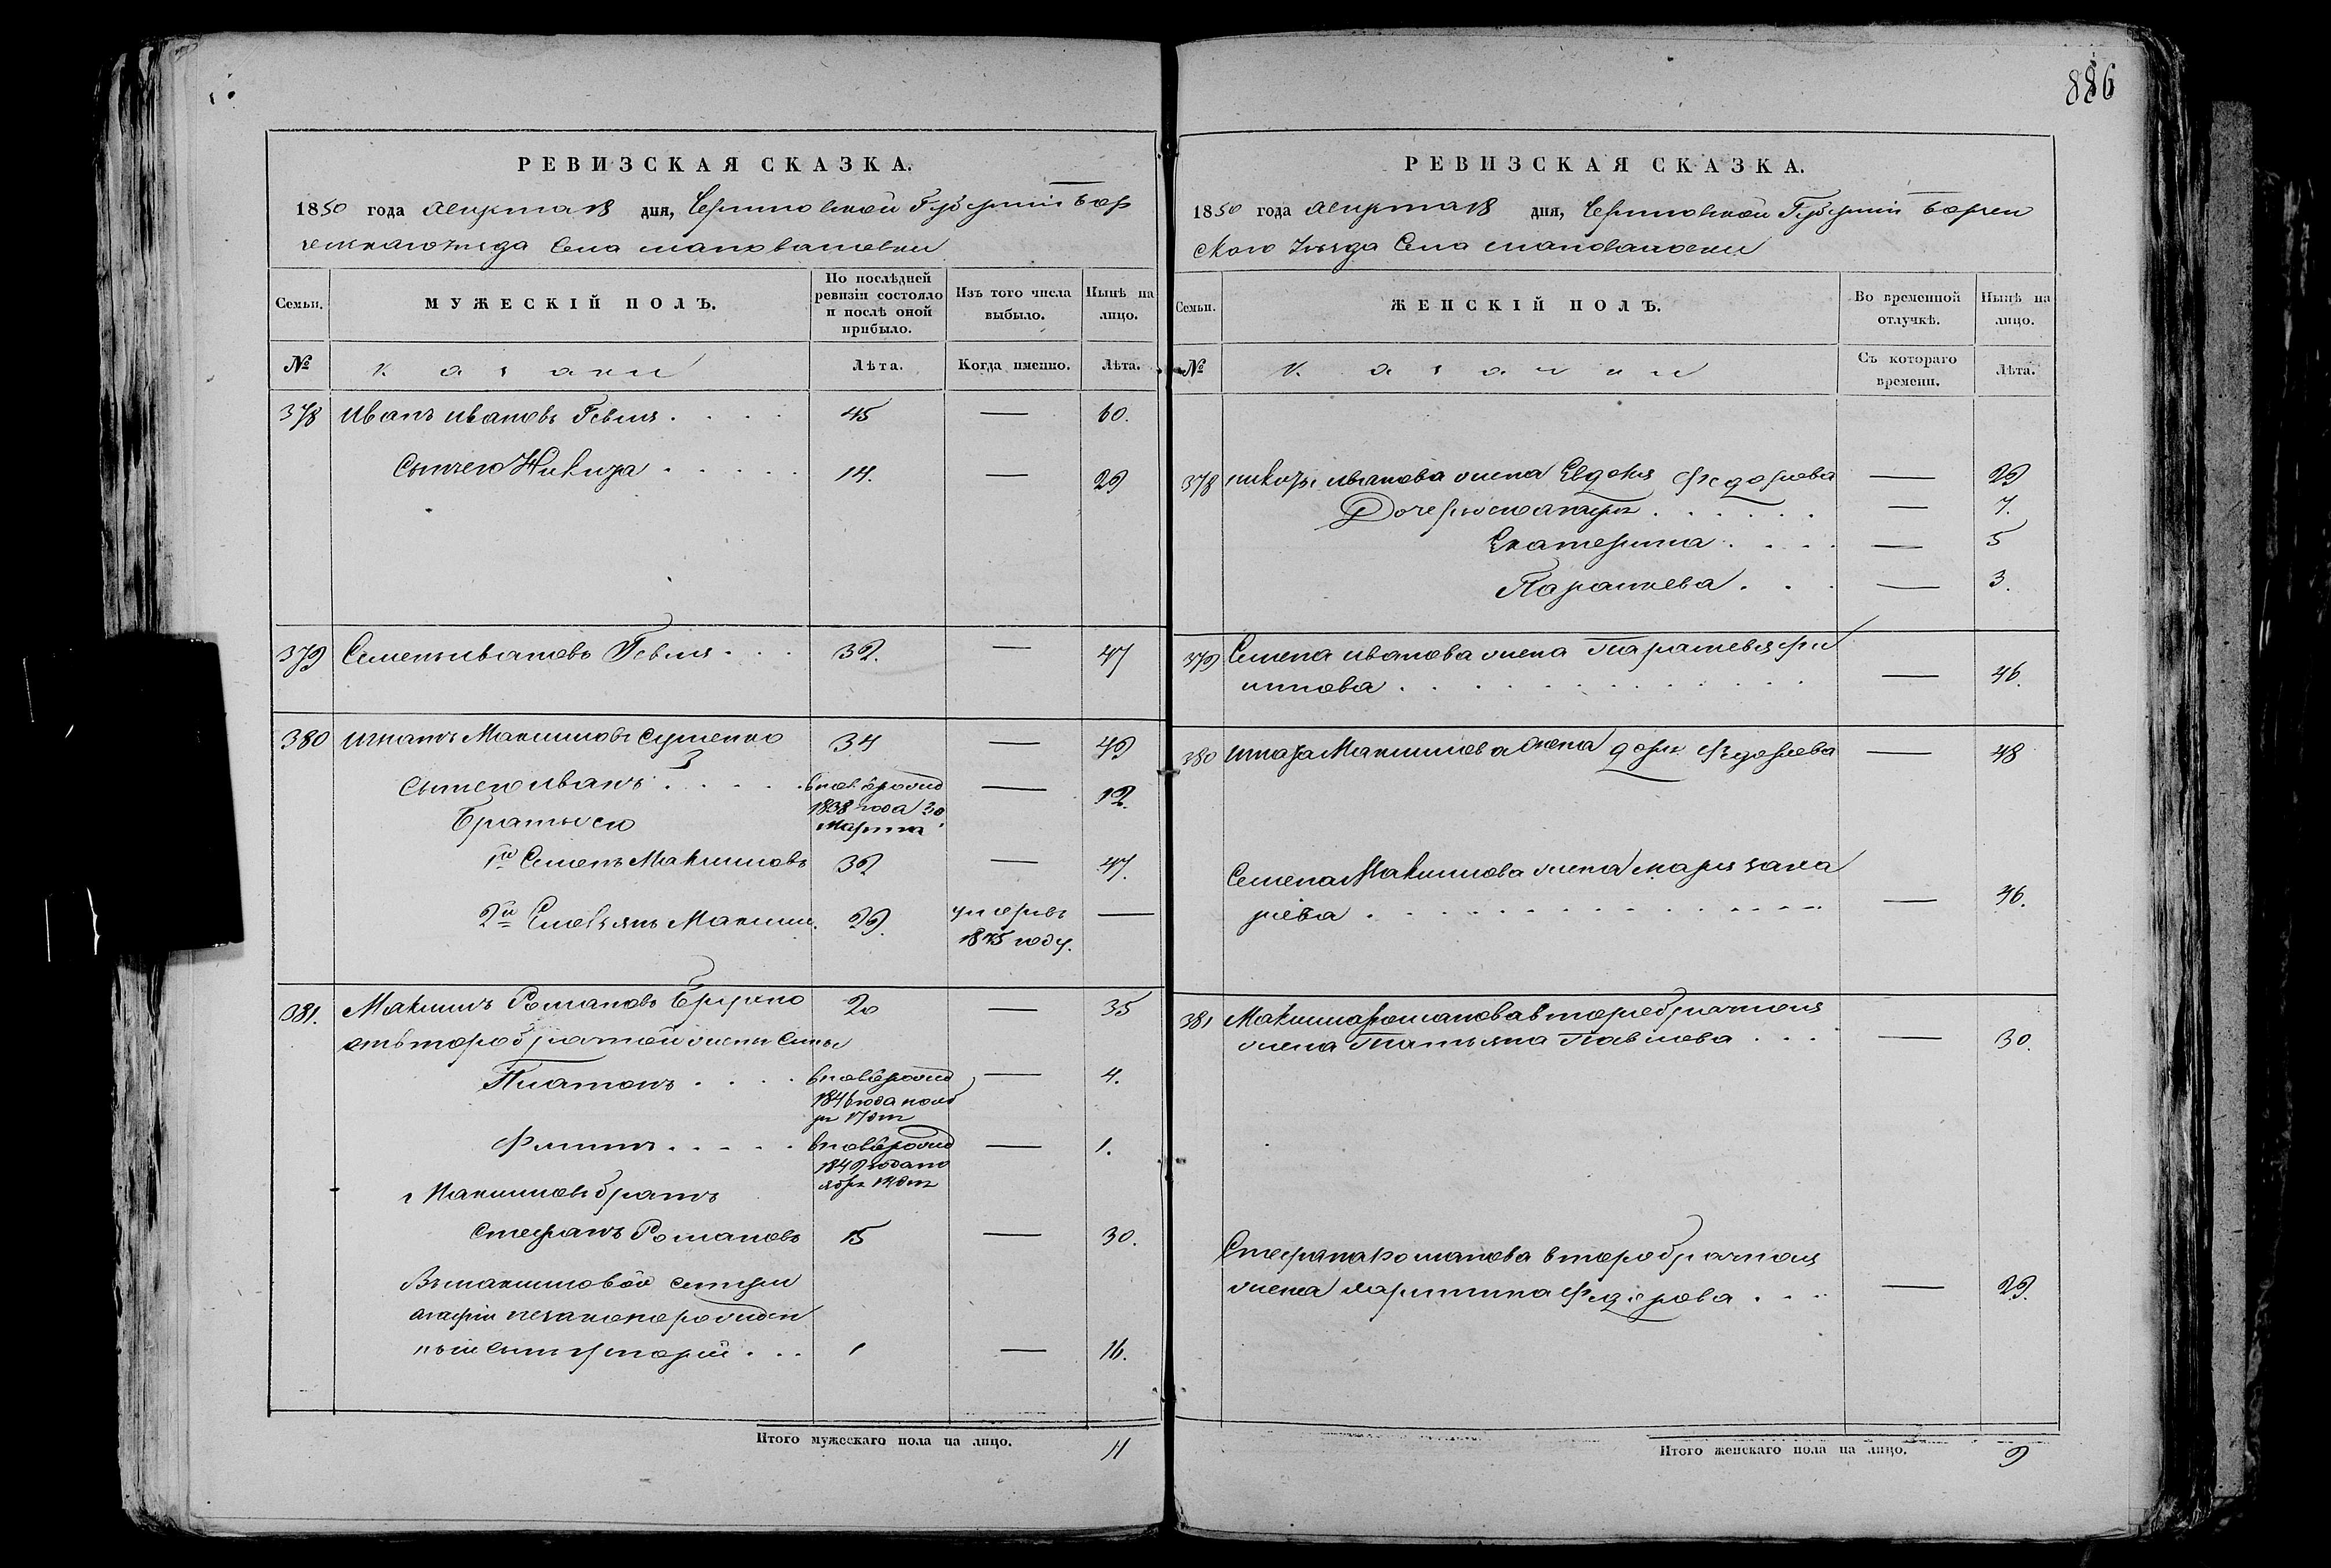 886
РЕВИЗСКАЯ СКАЗКА.
1850 года августа 18 дня, Черниговской Губернии Бор
зенскаго уезда Села
Семьи. МУЖЕСКІЙ ПОЛЪ. По послѣдней ревизіи состояло и послѣ оной прибыло. Изъ того числа выбыло. Нынѣ на лицо.
№ казаки Лѣта. Когда именно. Лѣта.
378 Иванъ Ивановъ 45 — 60.
Сынъ его Никита 14. — 29
379 Семенъ Ивановъ 32. — 47
380 Игнатъ Максимовъ 34 — 49
Сынъ его Иванъ вновь рожд 1838 года 30 Марта — 12.
Братья его
1й Семенъ Максимовъ 32 — 47.
2й Максим. 29. умеръ въ 1845 году. —
381. Максимъ Романовъ 20 — 35
отъ второбрачной жены Сыны
Платонъ вновь рожд 1846 года — 4.
Филипъ вновь рожд 1849 года — 1.
Максимовъ братъ
Стефанъ Романовъ 15 — 30.
Въ Максимовой сестры
Агафіи незаконорожден
ный сынъ Григорій 1 — 16.
Итого мужескаго пола на лицо. 11
РЕВИЗСКАЯ СКАЗКА.
1850 года августа 18 дня, Черниговской Губерніи Борзен
ского Уезда Села
Семьи. ЖЕНСКІЙ ПОЛЪ. Во временной отлучкѣ. Нынѣ на лицо.
№ казачки Съ котораго времени. Лѣта.
378 Никиты Иванова жена Евдокия Федорова — 29
Дочери его — 7.
Екатерина — 5
Параскева — 3.
379 Семена Иванова жена Фи
липова — 46.
380 Игната Максимова жена Федорова — 48
Семена Максимова жена Мария Заха
рьева — 46.
381 Максима Романова второбрачная
жена Татьяна Павлова — 30.
Стефана Романова второбрачная
жена Марина Федорова — 29.
Итого женскаго пола на лицо. 9